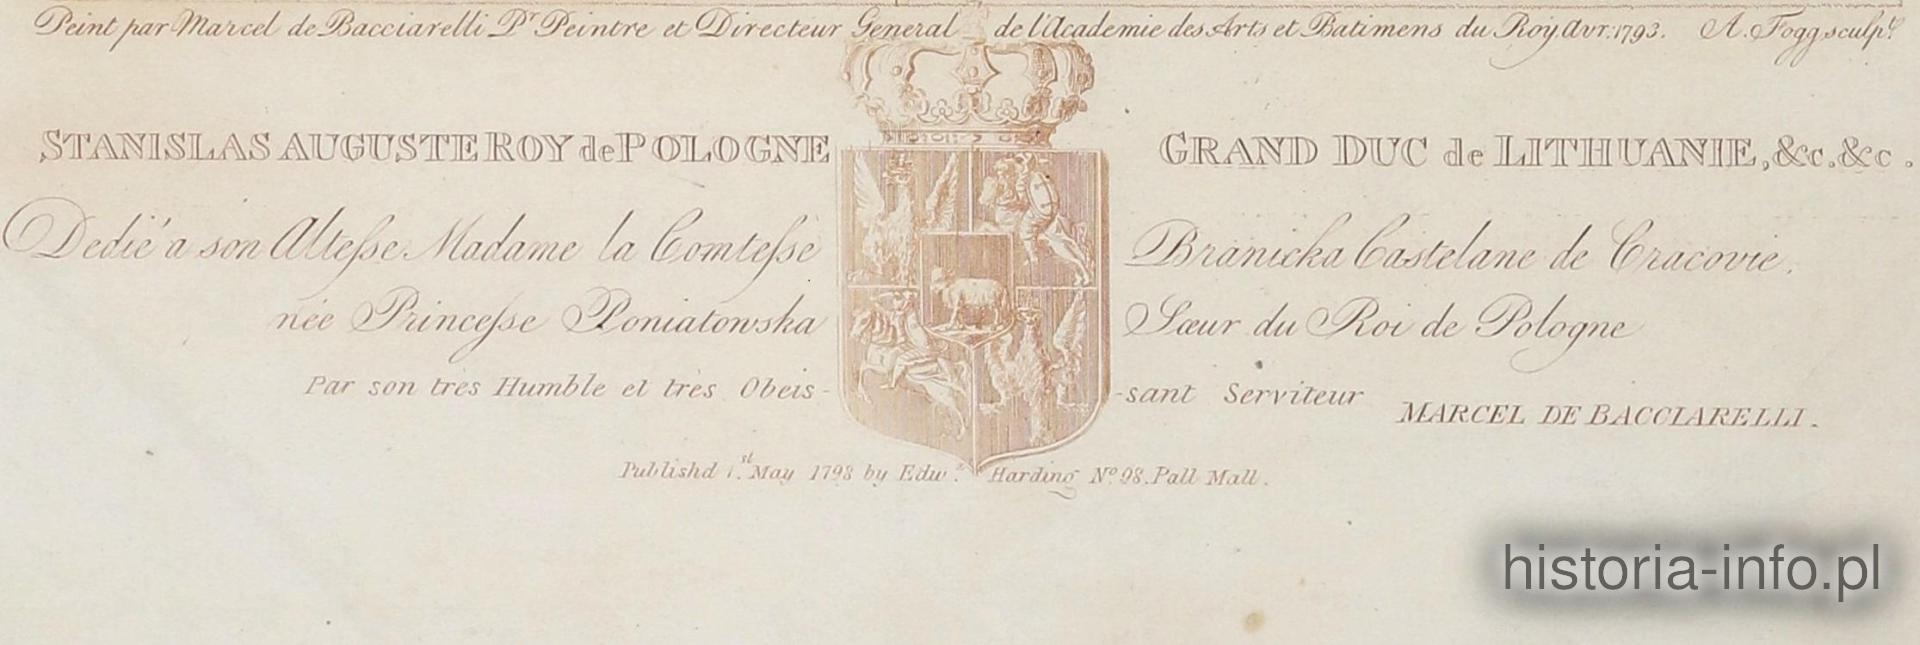 Peint par Marcel de Bacciarelli Pr Peintre et Directeur General de l'Academie des Arts et Batimens du Roy. Avr. 1793. A. Fogg sculpt.
STANISLAS AUGUSTE ROY de POLOGNE GRAND DUC de LITHUANIE, &c. &c.
Dedié a son Altesse Madame la Comtesse Branicka Castelane de Cracovie.
née Princesse Poniatowska Sœur du Roi de Pologne
Par son très Humble et très Obeis- -sant Serviteur
MARCEL DE BACCIARELLI.
Publishd 1.st May 1798 by Edwd. Harding No. 98. Pall Mall.
historia-info.pl